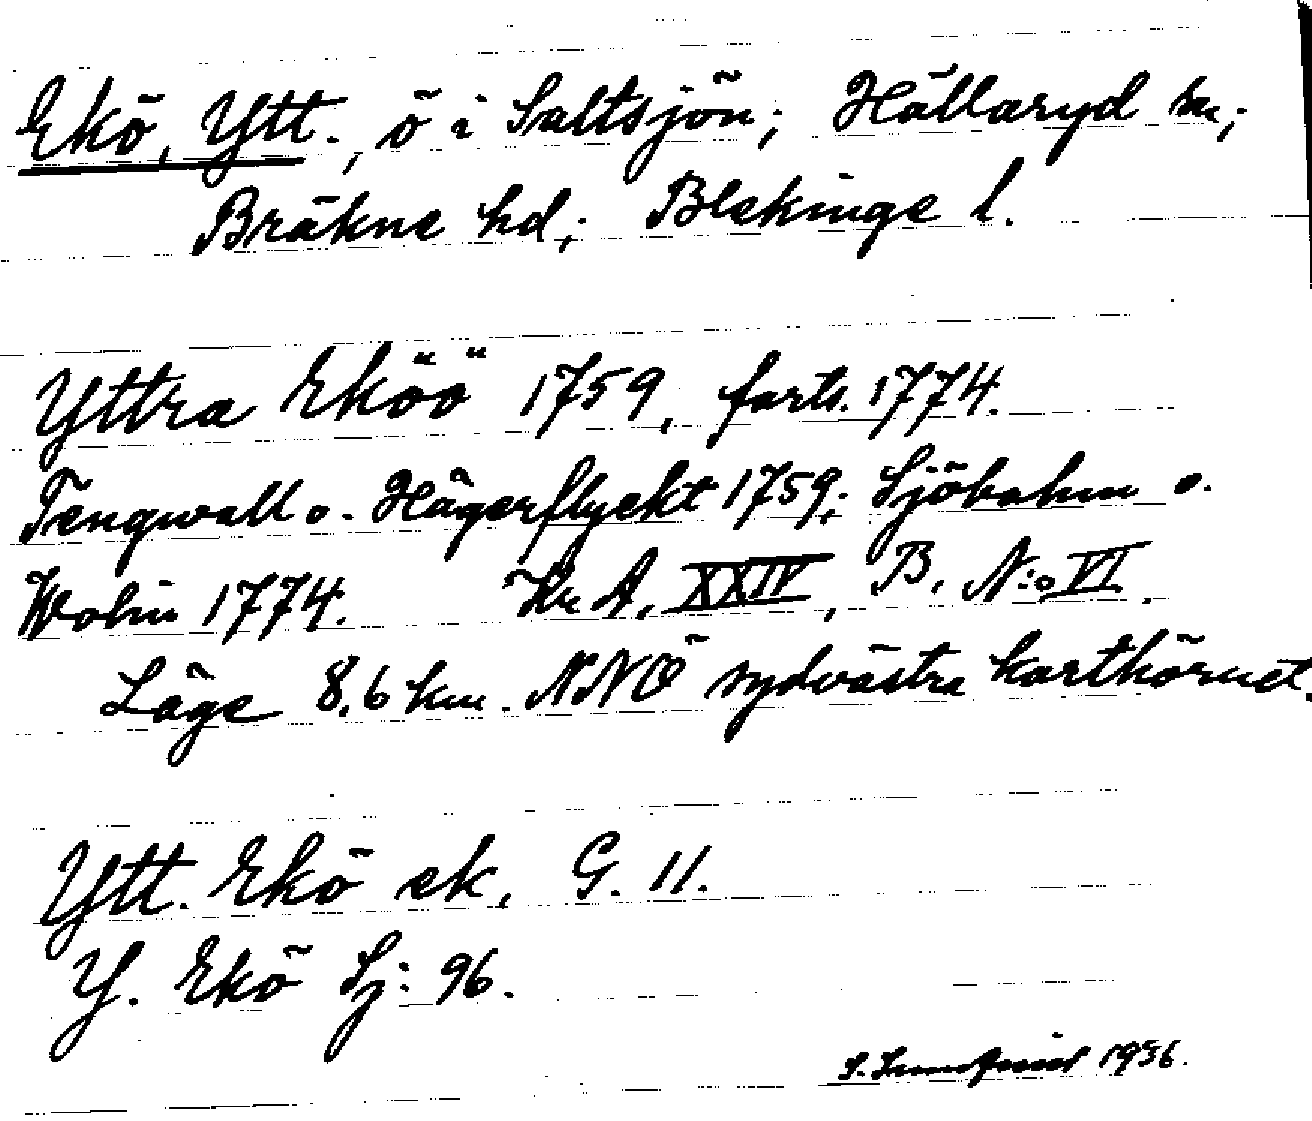 Ekö, Ytt., ö i Saltsjön; Hällaryd sn;
Bräkne hd; Blekinge l.
Yttra Eköö 1759, forts. 1774.
Tengwall o. Hägerflyckt 1759; Sjöbohm o.
Wolin 1774. Kr A, XXIV, B. N:o VI.
Läge 8,6 km. NNÖ sydvästra karthörnet.
Ytt. Ekö ek, G. 11.
Y. Ekö Sj: 96.
1936.